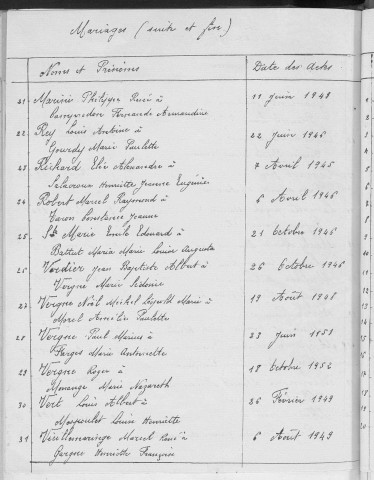 Mariages (suite et fin)
Noms et Prénoms Date des Actes
21 Philippe René à 11 Juin 1948
Fernande Amandine
22 Rey Louis Antoine à 22 Juin 1946
Gourdy Marie Paulette
23 Richard Elie Alexandre à 7 Avril 1945
Henriette Jeanne Eugénie
24 Robert Marcel Raymond à 6 Avril 1946
Constance Jeanne
25 Ste Marie Emile Edouard à 21 Octobre 1946
Battut Maria Marie Louise Augusta
26 Verdier Jean Baptiste Albert à 26 Octobre 1946
Vergne Marie Sidonie
27 Vergne Noël Michel Léopold Marie à 19 Août 1948
Morel Amélie Paulette
28 Vergne Paul Marius à 23 Juin 1951
Farges Marie Antoinette
29 Vergne Roger à 18 Octobre 1952
Marie Nazareth
30 Vert Louis Albert à 26 Février 1949
Louise Henriette
31 Marcel René à 6 Août 1949
Henriette Françoise